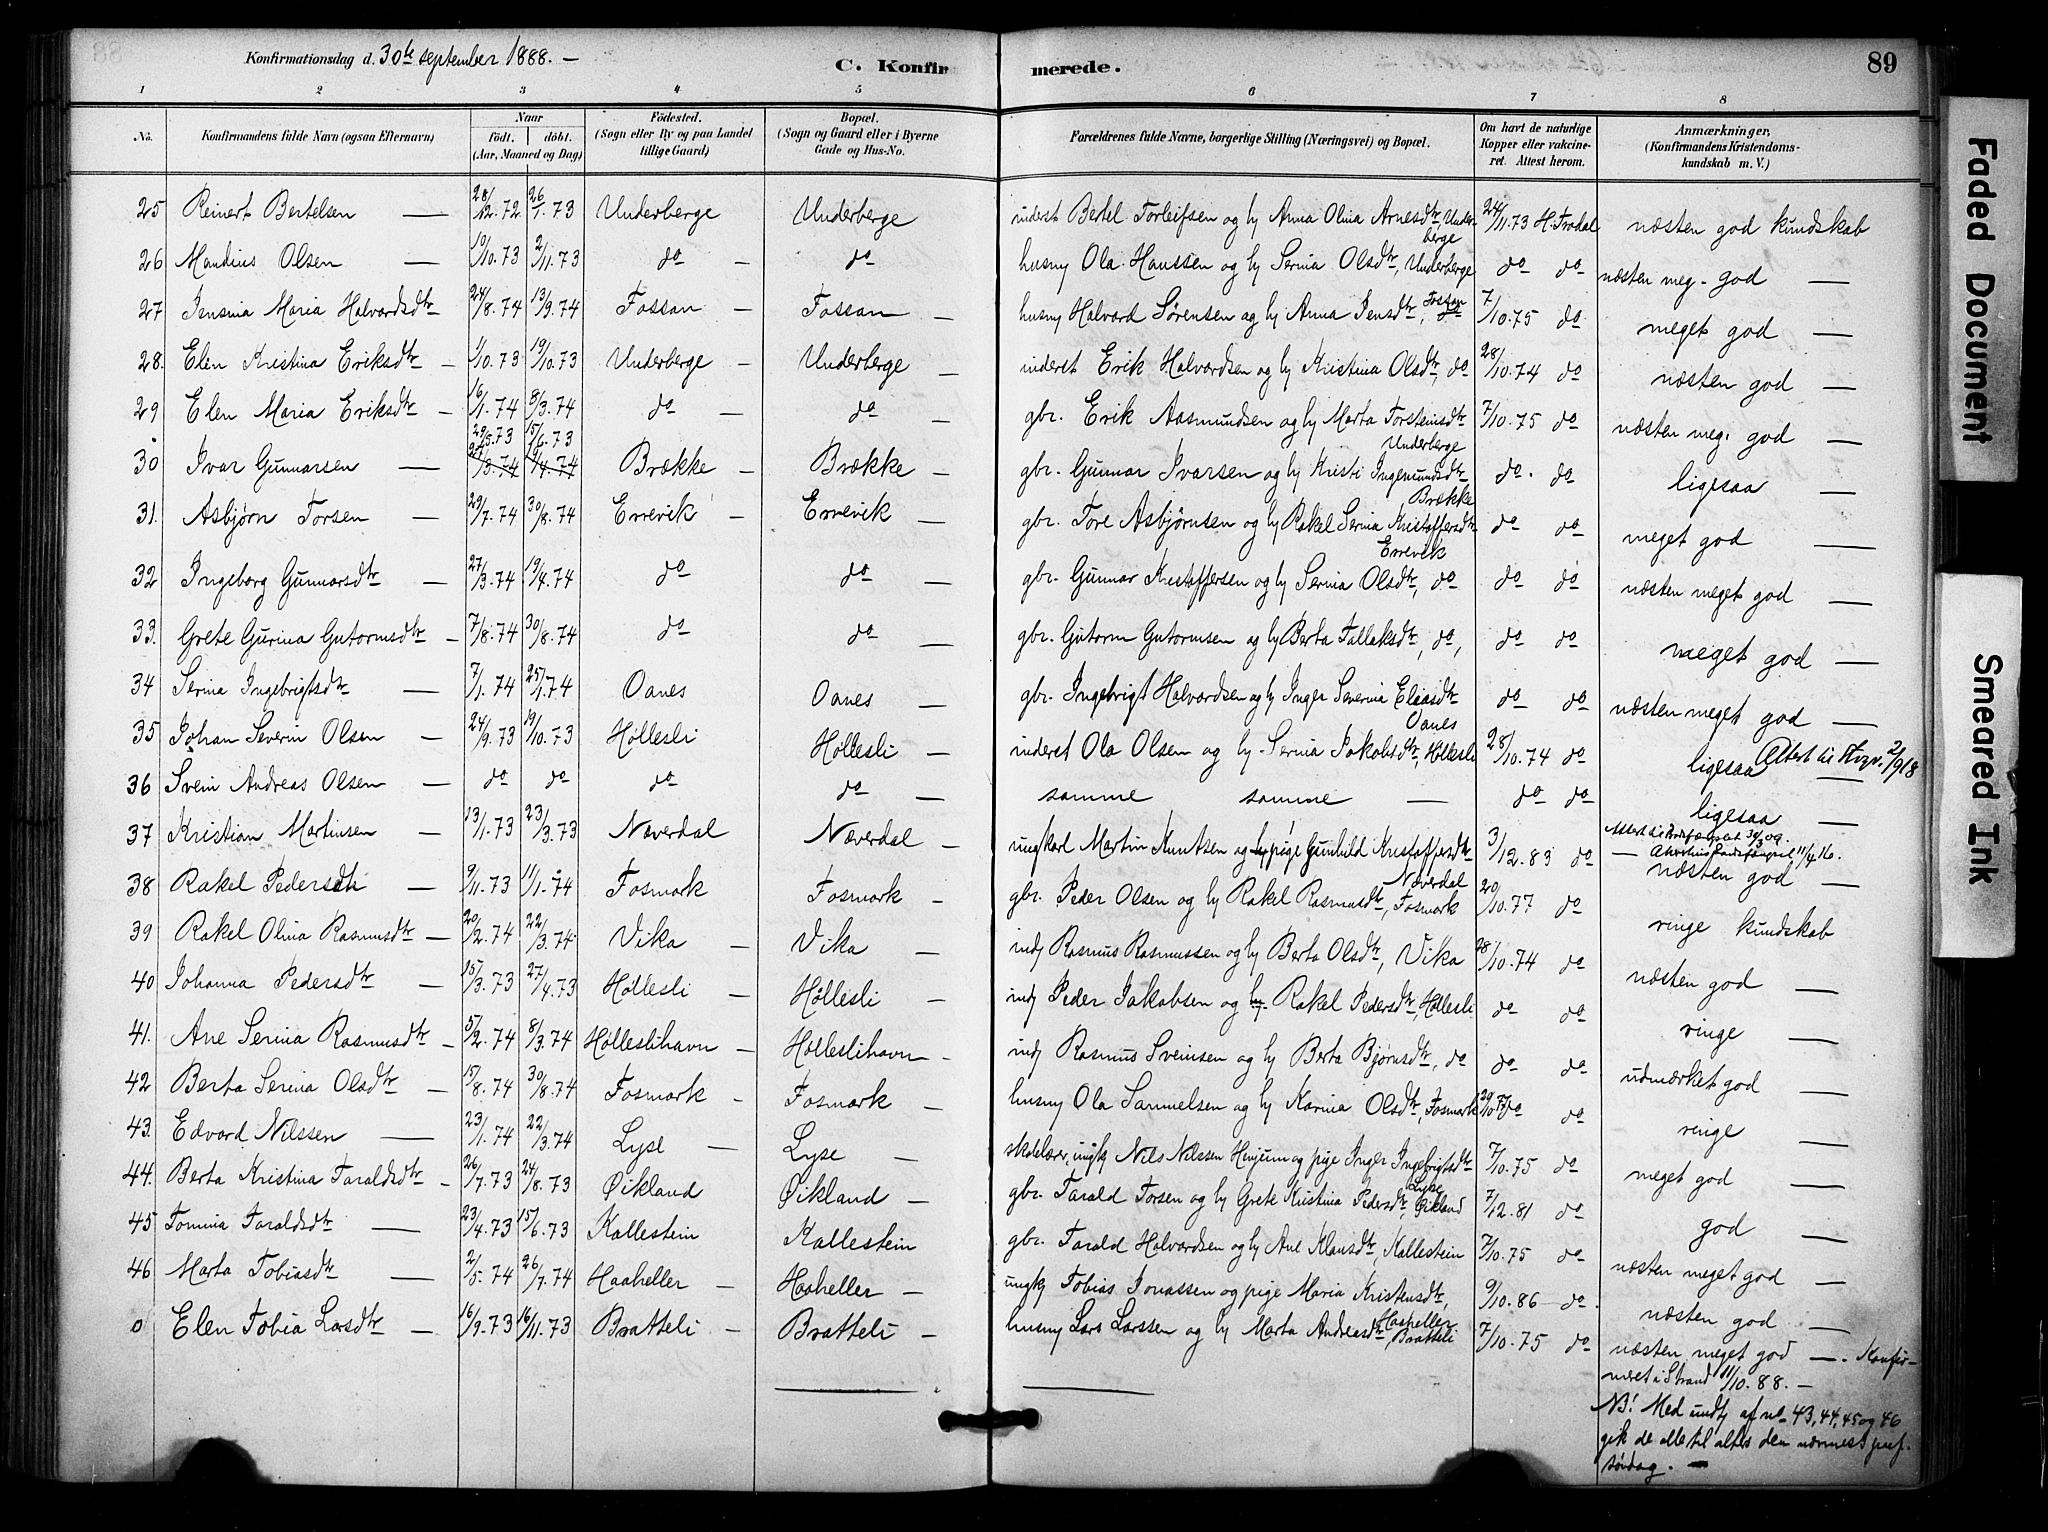 Konfirmationsdag d. 30te september 1888. –
C. Konfirmerede.
89
1 2 3 4 5 6 7 8
No. Konfirmandens fulde Navn (ogsaa Efternavn) Naar født. døbt. (Aar, Maaned og Dag) Fødested. (Sogn eller By og paa Landet tillige Gaard) Bopæl. (Sogn og Gaard eller i Byerne Gade og Hus-No. Forældrenes fulde Navne, borgerlige Stilling (Næringsvei) og Bopæl. Om havt de naturlige Kopper eller vakcineret. Attest herom. Anmærkninger, (Konfirmandens Kristendomskundskab m. V.)
25 Reinert Bertelsen — 28/12.72 26/1.73 Underberge Underberge inderst Bertel Torleifsen og hy Anna Olina Arnesdtr, Underberge 24/11.73 H. Trodal næsten god kundskab
26 Mandius Olsen — 10/10.73 2/11.73 do — do husmy Ola Hanssen og hy Serina Olsdtr, Underberge do do næsten meg. god —
27 Jensina Maria Halvardsdtr 24/8.74 13/9.74 Fossan — Fossan — husmy Halvard Sørensen og hy Anna Jensdtr, Fossan 7/10.75 do meget god —
28. Elen Kristina Eriksdtr — 1/10.73 19/10.73 Underberge — Underberge — inderst Erik Halvardsen og hy Kristina Olsdtr, do 28/10.74 do næsten god —
29 Elen Maria Eriksdtr — 16/1.74 8/3.74 do — do — gbr. Erik Assmundsen og hy Marta Torsteinsdtr Underberge 7/10.75 do næsten meg. god —
30 Ivar Gunnarsen — 29/5.73 15/6.73 Brække — Brække — gbr. Gunnar Ivarsen og hy Kristi Ingemundsdtr Brække do. do ligesaa —
31. Asbjørn Torsen — 29/7.74 30/8.74 Errevik — Errevik — gbr. Tore Asbjørnsen og hy Rakel Serina Kristoffersdtr Errevik do do meget god —
32 Ingeborg Gunnarsdtr — 27/3.74 19/4.74 do do — gbr. Gunnar Kristoffersen og hy Serina Olsdtr, do do do næsten meget god —
33. Grete Gurina Gutormsdtr — 7/8.74 30/8.74 do do — gbr. Gutorm Gutormsen og hy Berta Falleksdtr, do, do do meget god —
34 Serina Ingebrigtsdtr — 7/1.74 25/1.74 Oanes Oanes — gbr. Ingebrigt Halvardsen og hy Inger Severina Eliasdtr Oanes do do næsten meget god —
35 Johan Severin Olsen — 24/9.73 19/10.73 Høllesli Høllesli — inderst Ola Olsen og hy Serina Jakobsdtr, Høllesli 28/10.74 do ligesaa — Attest 2/918
36 Svein Andreas Olsen — do do do do — samme samme — do do ligesaa —
37 Kristian Martinsen — 13/1.73 23/3.73 Næverdal Næverdal — ungkarl Martin Knutsen og pige Gunhild Kristoffersdtr Næverdal 3/12.83 do næsten god —
38 Rakel Pedersdtr — 9/11.73 11/1.74 Fosmark Fosmark — gbr. Peder Olsen og hy Rakel Rasmusdtr, Fosmark 20/10.77 do ringe kundskab
39 Rakel Olina Rasmusdtr — 20/2.74 22/3.74 Vika — Vika — indj Rasmus Rasmussen og hy Berta Olsdtr, Vika 28/10.74 do næsten god —
40 Johanna Pedersdtr — 15/3.73 27/4.73 Høllesli — Høllesli — indj Peder Jakobsen og hy Rakel Pedersdtr, Høllesli do do ringe —
41. Ane Serina Rasmusdtr — 5/2.74 8/3.74 Hølleslihavn — Hølleslihavn — indj Rasmus Sveinsen og hy Berta Bjørnsdtr, do do do udmærket god —
42 Berta Serina Olsdtr — 15/8.74 30/8.74 Fosmark — Fosmark — husmy Ola Samuelsen og hy Karina Olsdtr, Fosmark do do ringe —
43. Edvard Nilssen — 23/1.74 22/3.74 Lyse — Lyse — skolelærer, ungk Nils Nilssen Henjum og pige Inger Ingebrigtsdtr Lyse 7/10.75 do meget god —
44. Berta Kristina Taraldsdtr — 26/7.73 24/8.73 Øikland Øikland — gbr. Tarald Torsen og hy Grete Kristina Pedersdtr, Øikland 7/12.81 do god —
45 Tomina Taraldsdtr — 23/4.73 15/6.73 Kallestein Kallestein gbr. Tarald Halvardsen og hy Ane Klausdtr, Kallestein 7/10.75 do næsten meget god —
46 Marta Tobiasdtr — 2/5.74 26/7.74 Haaheller — Haaheller — ungk Tobias Jonassen og pige Maria Kristensdtr, Haaheller 9/10.86 do. næsten god —
0 Elen Tobia Larsdtr — 16/9.73 16/11.73 Bratteli — Bratteli — husmy Lars Larssen og hy Marta Andreasdtr Bratteli 7/10.75 do næsten meget god —. Konfirmeret i Strand 11/10.88. —
NB! Med undt af no 43, 44, 45 og 46
gik de alle til alters den nærmest paaf.
søndag. —
Faded Document
Smeared Ink